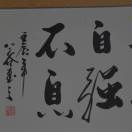 自強
不息
壬辰年